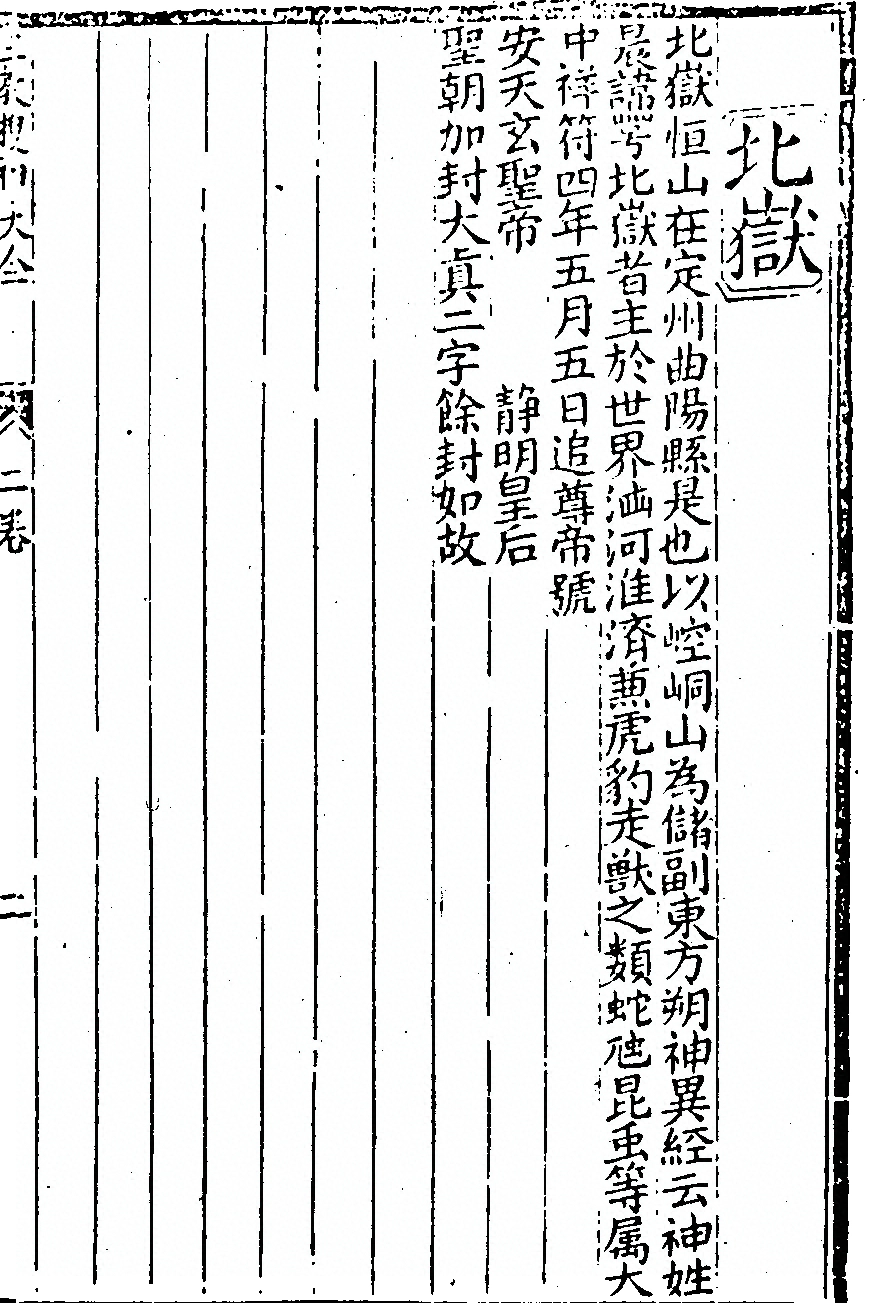 北嶽
北嶽恒山在定州曲陽縣是也以崆峒山為儲副東方朔神異經云神姓
晨諱號北嶽者主於世界江河淮濟蕉虎豹走獸之類蛇虺昆虫等属大
中祥符四年五月五日追尊帝號
安天玄聖帝 静明皇后
聖朝加封大真二字餘封如故
二卷
二